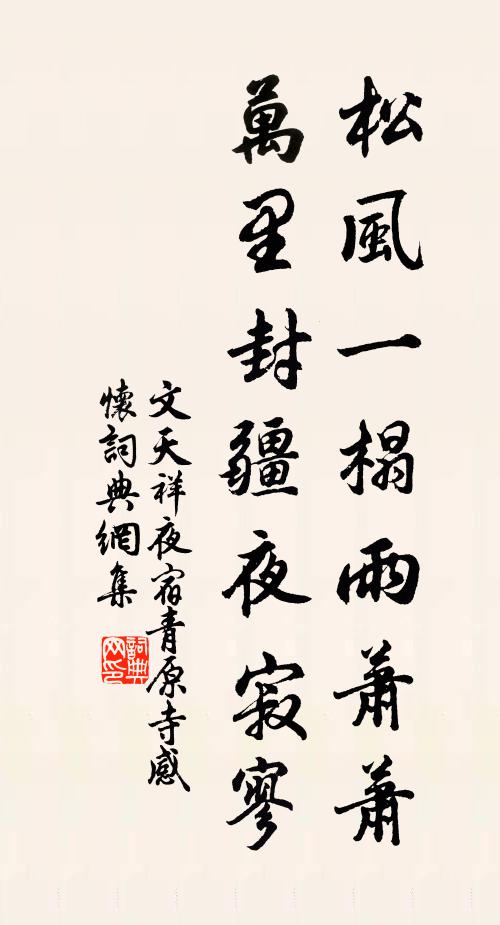 松風一榻雨蕭蕭
萬里封疆夜寂寥
文天祥夜宿青原寺感
懷詞典網集
詞典
网印